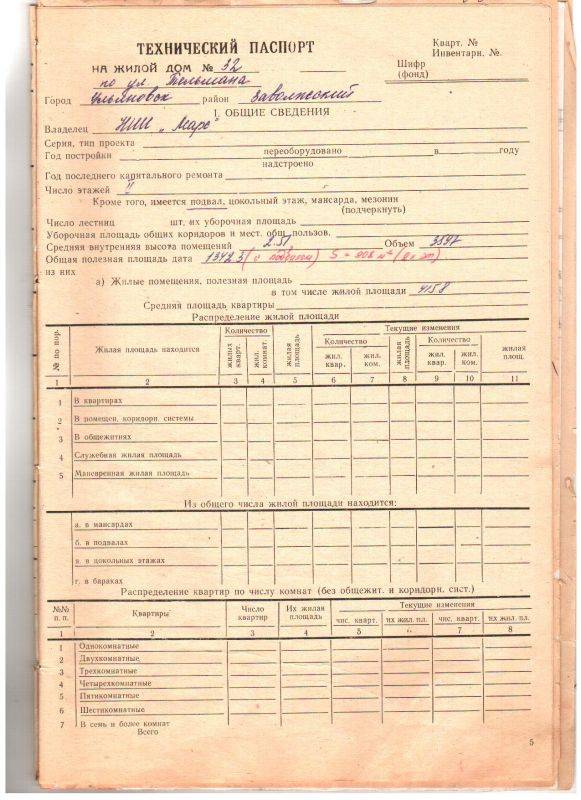 ТЕХНИЧЕСКИЙ ПАСПОРТ
Кварт. №
Инвентарн. №.
НА ЖИЛОЙ ДОМ № 32
Шифр
(фонд)
по ул. Тельмана
Город Ульяновск район Заволжский
I. ОБЩИЕ СВЕДЕНИЯ
Владелец НИИ „Марс"
Серия, тип проекта
Год постройки переоборудовано в году
надстроено
Год последнего капитального ремонта
Число этажей II
Кроме того, имеется подвал, цокольный этаж, мансарда, мезонин
(подчеркнуть)
Число лестниц шт, их уборочная площадь
Уборочная площадь общих коридоров и мест. общ пользов.
Средняя внутренняя высота помещений 2.51 Объем 3597
Общая полезная площадь дата 1342.5 (с подвалом) S = 908 м²
из них
а) Жилые помещения, полезная площадь
в том числе жилой площади 415.8
Средняя площадь квартиры
Распределение жилой площади
№ по пор.
Жилая площадь находится
Количество
жилых кварт.
жил. комнат
жилая площадь
Текущие изменения
Количество
жил. квар.
жил. ком.
жилая площадь
Количество
жил. квар.
жил. ком.
жилая площ.
1 2 3 4 5 6 7 8 9 10 11
1 В квартирах
2 В помещен. коридорн. системы
3 В общежитиях
4 Служебная жилая площадь
5 Маневренная жилая площадь
Из общего числа жилой площади находится:
а. в мансардах
б. в подвалах
в. в цокольных этажах
г. в бараках
Распределение квартир по числу комнат (без общежит. и коридорн. сист.)
№№ п. п.
Квартиры
Число квартир
Их жилая площадь
Текущие изменения
чис. кварт.
их жил. пл.
чис. кварт.
их жил. пл.
1 2 3 4 5 6 7 8
1 Однокомнатные
2 Двухкомнатные
3 Трехкомнатные
4 Четырехкомнатные
5 Пятикомнатные
6 Шестикомнатные
7 В семь и более комнат
Всего
5